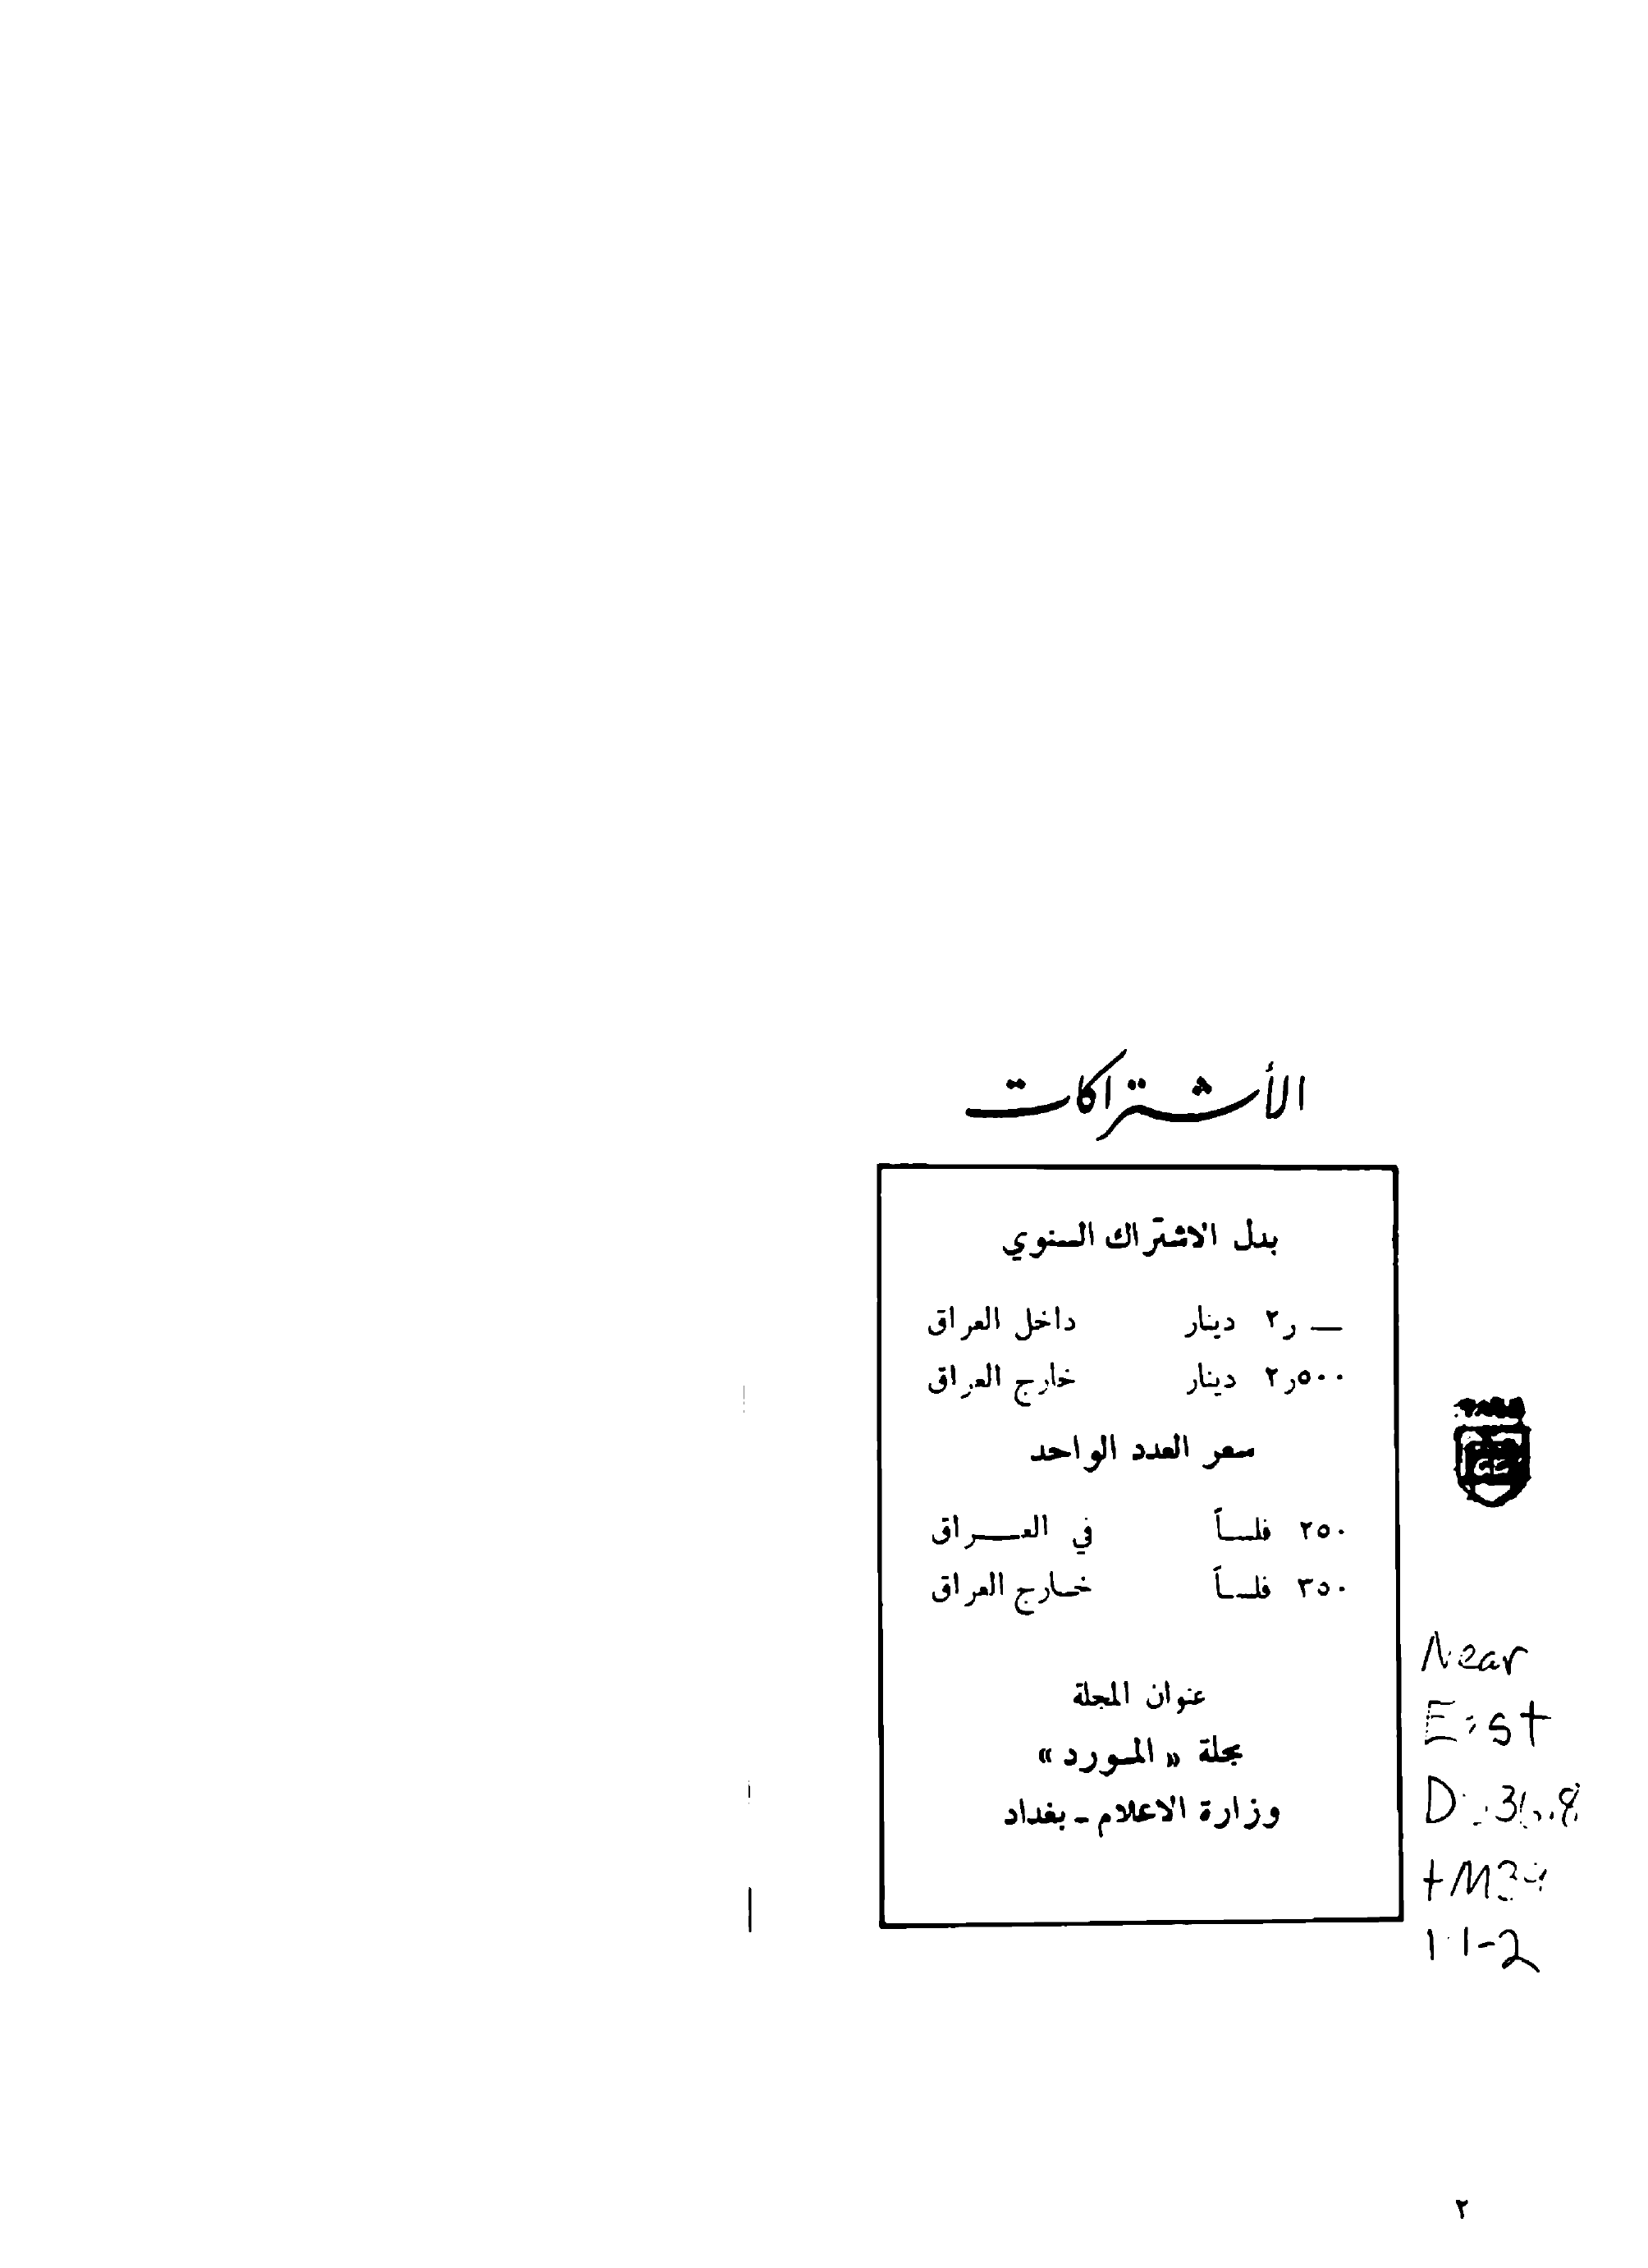 الأشتراكات
بدل الاشتراك السنوي
— ر٢ دينار داخل العراق
٥٠٠ر٢ دينار خارج العراق
سعر العدد الواحد
٢٥٠ فلساً في العـــراق
٣٥٠ فلساً خـارج العراق
عنوان المجلة
مجلة « المـورد »
وزارة الاعلام - بغداد
Near
East
٢